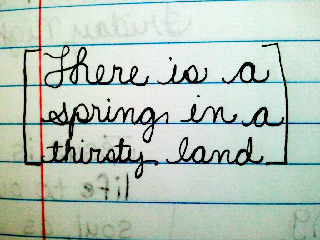 There is a
spring in a
thirsty land